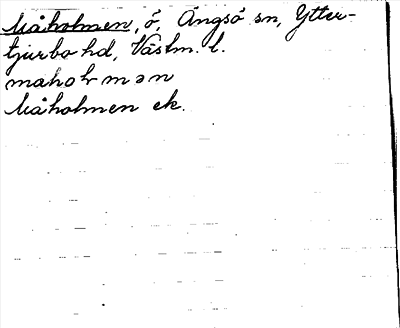 Måholmen, ö, Ängsö sn, Ytter-
tjurbo hd, Västm. l.
maholmən
Måholmen ek.